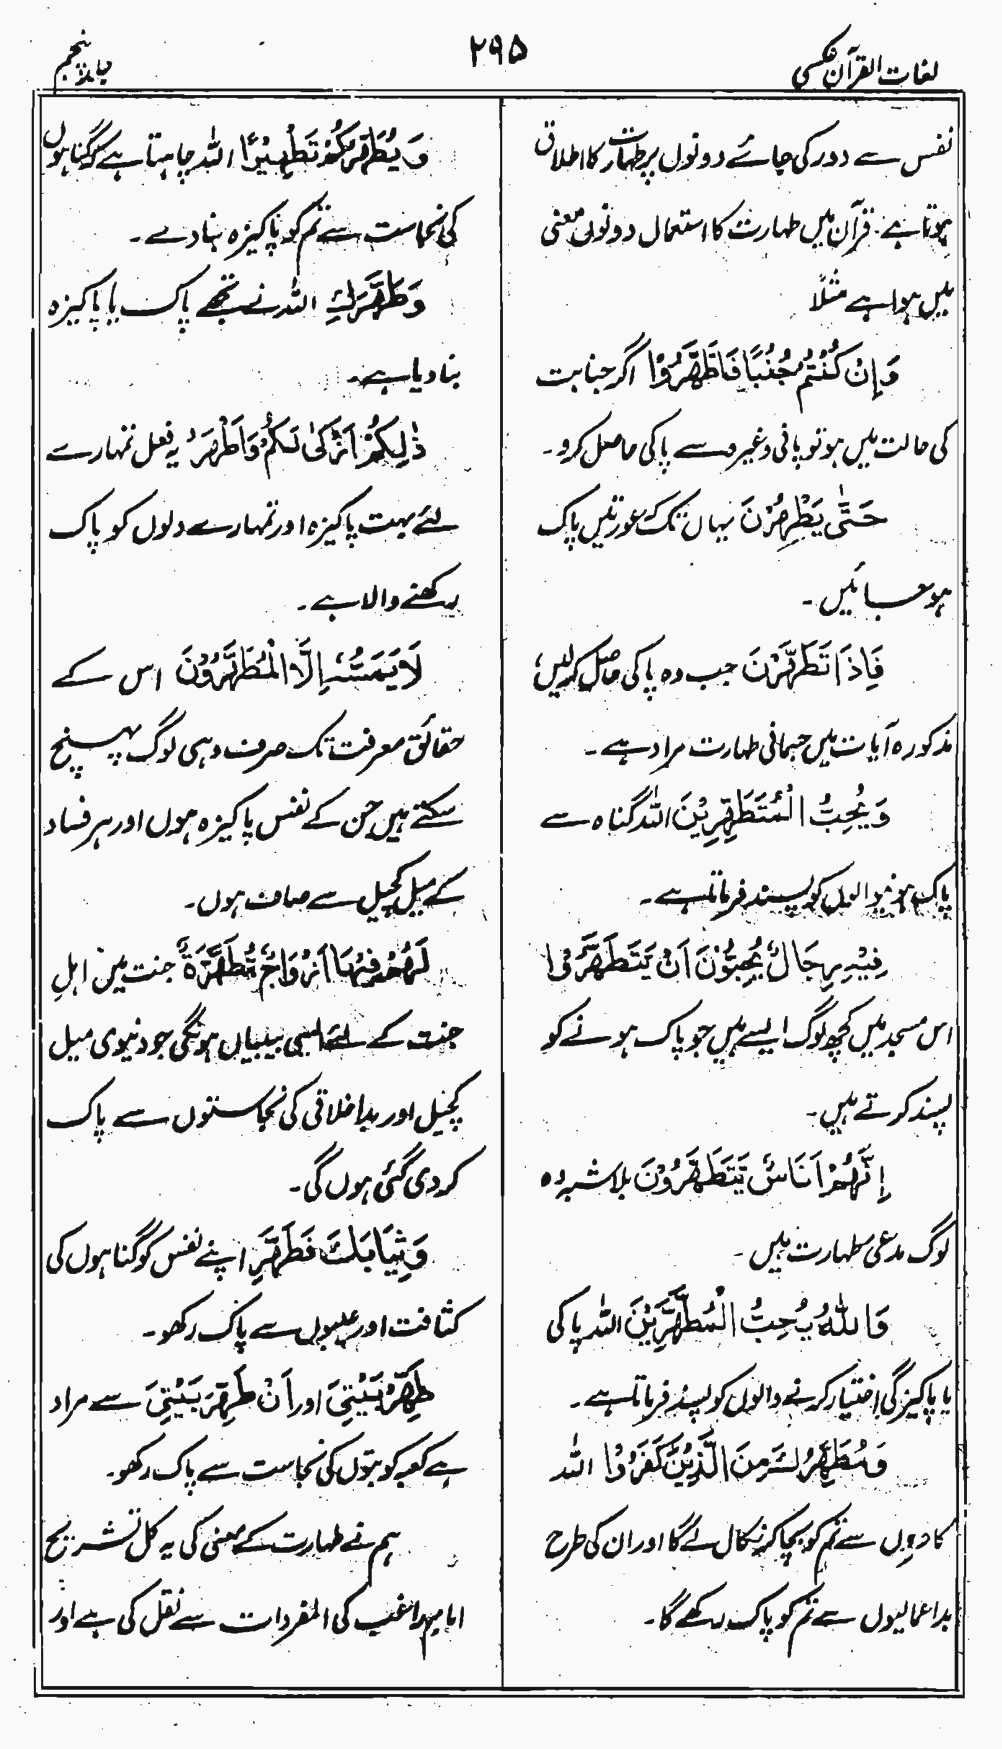 لغات القرآن عکسی
۲۹۵
جلد پنجم
نفس سے دور کی جائے دونوں پر طہارت کا اطلاق
ہوتا ہے۔ قرآن میں طہارت کا استعمال دونوں معنی
میں ہوا ہے مثلاً
وَإِنْ كُنْتُمْ جُنُبًا فَاطَّهَّرُوْا اگر جنابت
کی حالت میں ہو تو پانی وغیرہ سے پاکی حاصل کرو۔
حَتّٰى يَطْهُرْنَ یہاں تک عورتیں پاک
ہو جائیں۔
فَاِذَا تَطَهَّرْنَ جب وہ پاکی حاصل کرلیں،
مذکورہ آیات میں جسمانی طہارت مراد ہے۔
وَيُحِبُّ الْمُتَطَهِّرِيْنَ اللہ گناہ سے
پاک ہونے والوں کو پسند فرماتا ہے۔
فِيْهِ رِجَالٌ يُّحِبُّوْنَ اَنْ يَّتَطَهَّرُوْا
اس مسجد میں کچھ لوگ ایسے ہیں جو پاک ہونے کو
پسند کرتے ہیں۔
اِنَّهُمْ اُنَاسٌ يَّتَطَهَّرُوْنَ بلاشبہ وہ
لوگ مدعی طہارت ہیں۔
وَاللّٰهُ يُحِبُّ الْمُطَّهِّرِيْنَ اللہ پاکی
یا پاکیزگی اختیار کرنے والوں کو پسند فرماتا ہے۔
وَمُطَهِّرُكَ مِنَ الَّذِيْنَ كَفَرُوْا اللہ
کافروں سے تم کو بچا کر نکال لے گا اور ان کی طرح
بداعمالیوں سے تم کو پاک رکھے گا۔
وَيُطَهِّرَكُمْ تَطْهِيْرًا اللہ چاہتا ہے کہ گناہوں
کی نجاست سے تم کو پاکیزہ بنا دے۔
وَطَهَّرَكِ اللہ نے تجھے پاک یا پاکیزہ
بنا دیا ہے۔
ذٰلِكُمْ اَزْكٰى لَكُمْ وَاَطْهَرُ یہ فعل تمہارے
لئے بہت پاکیزہ اور تمہارے دلوں کو پاک
رکھنے والا ہے۔
لَا يَمَسُّهٗ اِلَّا الْمُطَهَّرُوْنَ اس کے
حقائق معرفت تک صرف وہی لوگ پہنچ
سکتے ہیں جن کے نفس پاکیزہ ہوں اور ہر فساد
کے میل کچیل سے صاف ہوں۔
لَهُمْ فِيْهَا اَزْوَاجٌ مُّطَهَّرَةٌ جنت میں اہلِ
جنت کے لئے ایسی بیبیاں ہونگی جو دنیوی میل
کچیل اور بداخلاقی کی نجاستوں سے پاک
کر دی گئی ہوں گی۔
وَثِيَابَكَ فَطَهِّرْ اپنے نفس کو گناہوں کی
کثافت اور عیبوں سے پاک رکھو۔
طَهِّرْ بَيْتِيَ اور اَنْ طَهِّرَ بَيْتِيَ سے مراد
ہے کعبہ کو بتوں کی نجاست سے پاک رکھو۔
ہم نے طہارت کے معنی کی یہ کل تشریح
امام راغب کی المفردات سے نقل کی ہے اور